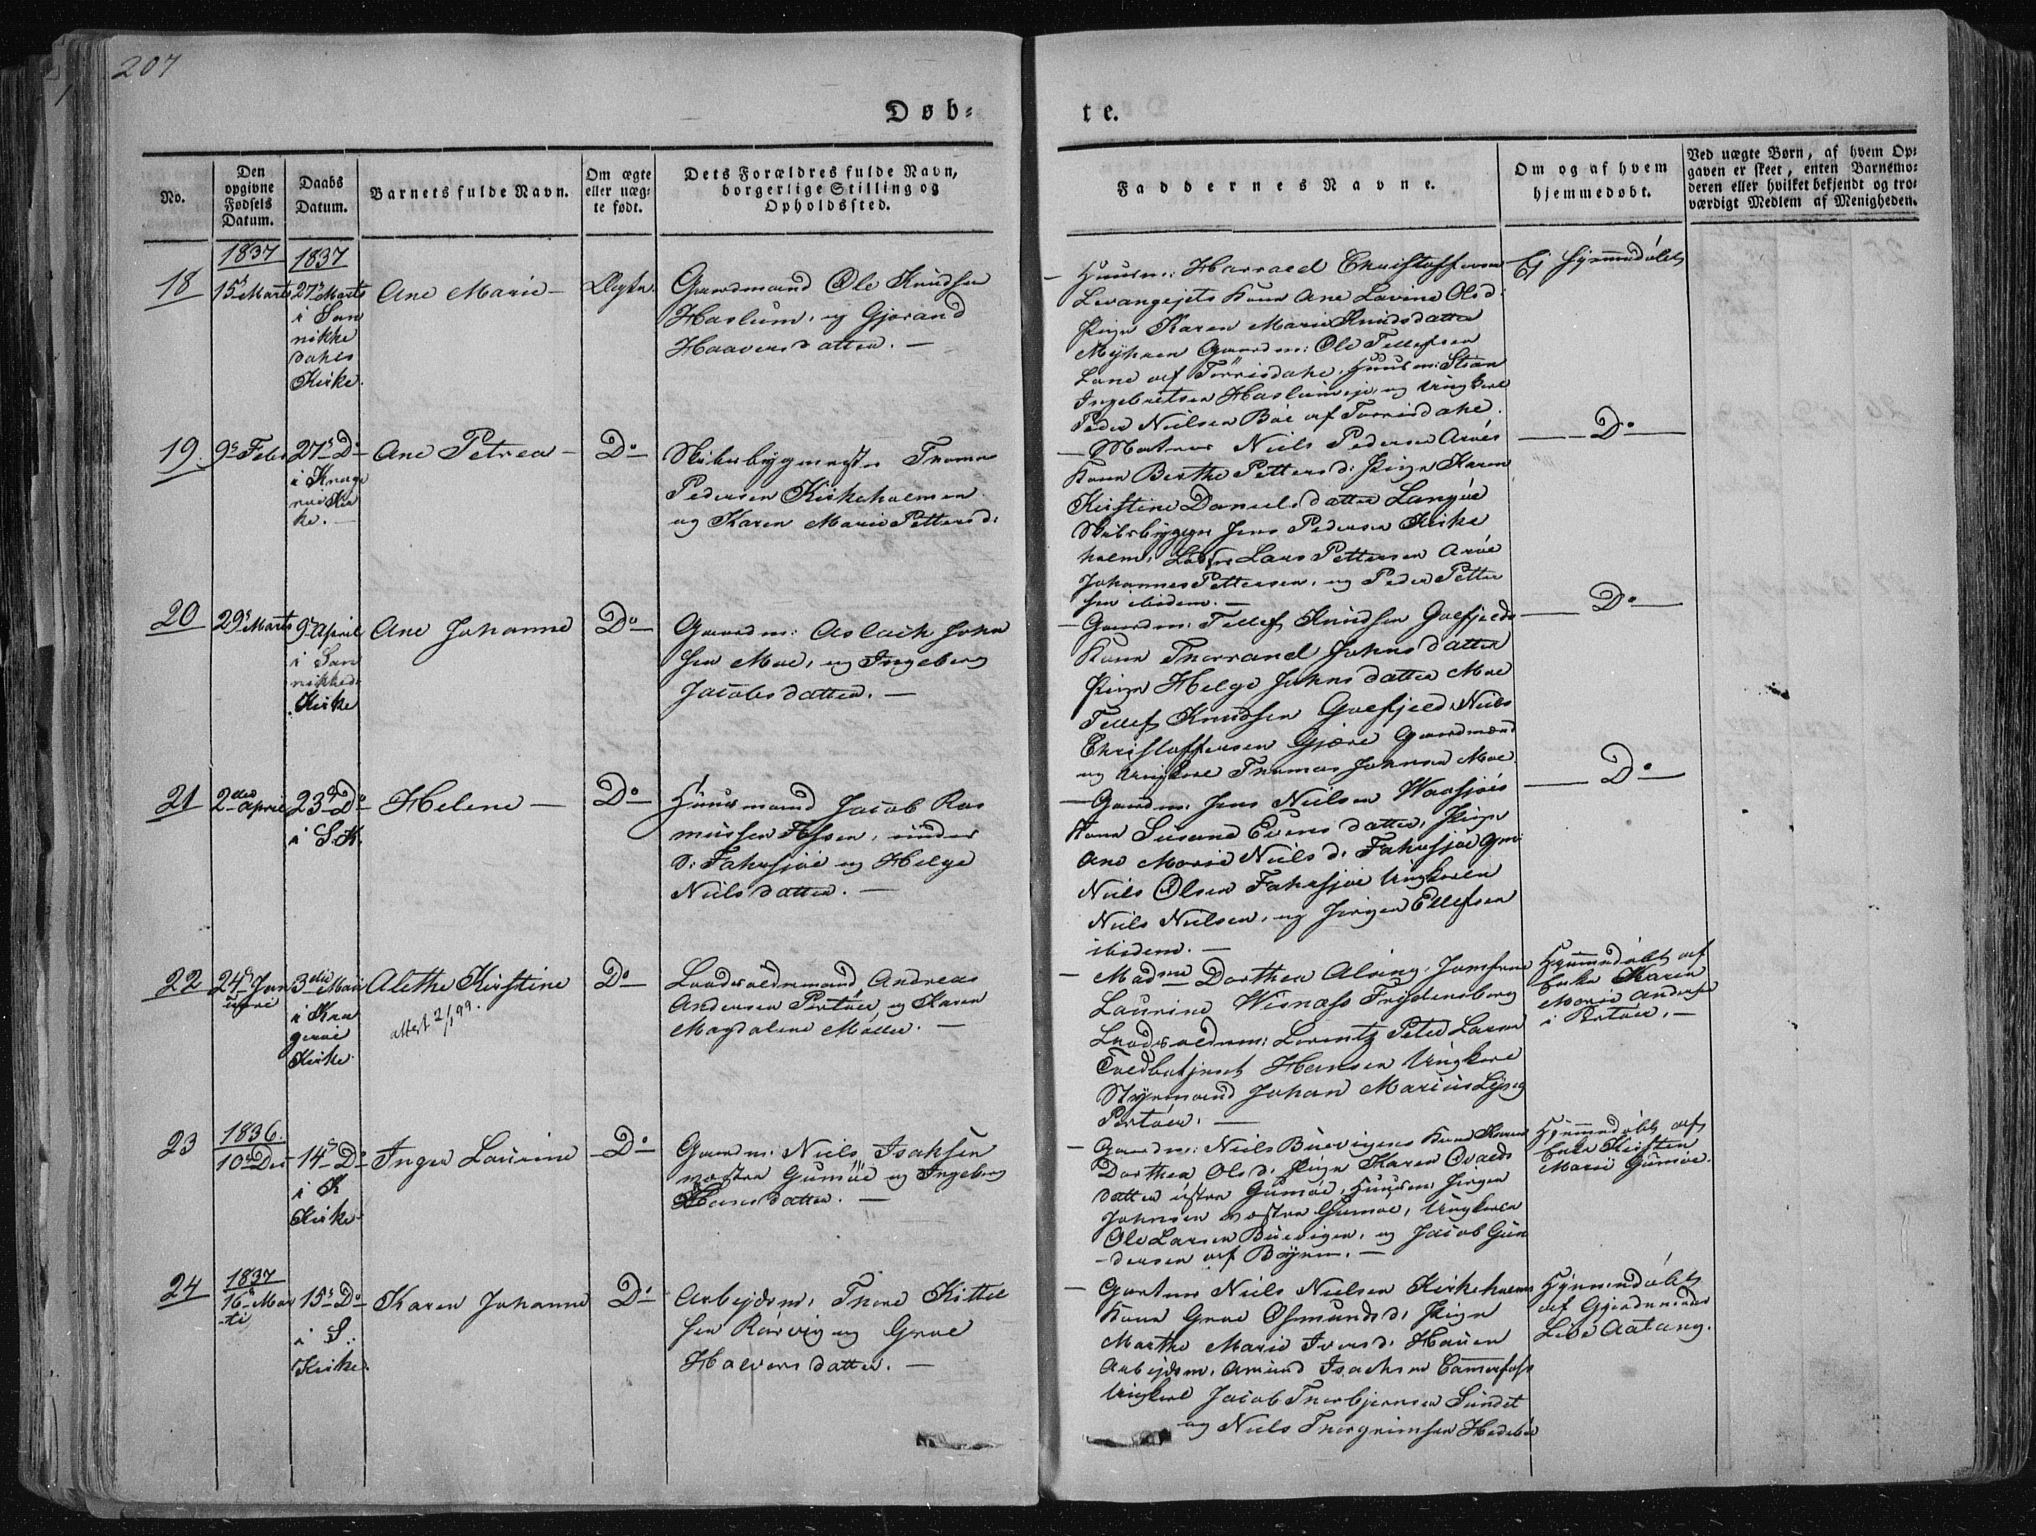 207
Døb-
te.
No.
Den opgivne Fødsels Datum.
Daabs Datum.
Barnets fulde Navn.
Om ægte eller uæg-te født.
Dets Forældres fulde Navn, borgerlige Stilling og Opholdssted.
Faddernes Navne.
Om og af hvem hjemmedøbt.
Ved uægte Børn, af hvem Op-gaven er skeet, enten Barnemo-deren eller hvilket bekjendt og tro-værdigt Medlem af Menigheden.
1837
1837
18
15de Marts
27de Marts
i San
nikke
dahls
Kirke.
Ane Marie -
Ægte
Gaardmand Ole Knudsen
Haslum, og Gjørand
Haavorsdatter. -
Huusm: Harrald Christoffersen
Kone Ane Lavine Olsd:
Pige Karen Marie Knudsdatter
Mÿhren Gaardm: Ole Tellefsen
Lone af Tørrisdahl, Huusm: Stian
Ingebretsen Haslumeje, og Ungkarl
Peder Nielsen Bøe af Torrisdahl.
Ej Hjemmedøbt
19.
9de Febr
27de Do
i Krage
røe Kir
ke. -
Ane Petrea -
Do
Skibsbygmester Thomas
Pedersen Kirkeholmen
og Karen Marie Pettersd:
- Matros Niels Pedersen Arøes
Kone Berthe Pettersd: Pige Karen
Kirstine Danielsdatter Langøe
Skibsbygger Jens Pedersen Kirke
holm, Lods Lars Pettersen Arøe
Johannes Pettersen, og Peder Petter
sen ibidem. -
Do
20
29de Marts
9de April
i San
nikkeds
Kirke
Ane Johanne
Do
Gaardm: Aslach John
sen Moe, og Ingeborg
Jacobsdatter. -
- Gaardm: Tellef Knudsen Goefjelds
Kone Thorrand Johnsdatter
Pige Helge Johnsdatter Moe
Tellef Knudsen Goefjeld, Niels
Christoffersen Gjære Gaardmænd
og Ungkarl Thomas Johnsen Moe
Do
21
2den April
23de Do
i S.K.
Helene -
Do
Huusmand Jacob Ras
mussen, under
d: Fahrsjøe og Helge
Nielsdatter. -
- Gaardm: Jens Nielsen
Kone Susane Evensdatter, Pige
Ane Marie Nielsd: Fahrsjøe
Niels Olsen Fahrsjøe Ungkarlen
Niels Nielsen, og Jørgen Ellefsen
ibidem. -
Do
22
24de Jan
uari
3die Mai
i Kra
gerøe
Kirke
Alethe Kirstine
attest 2/1 99.
Do
Laadsoldermand Andreas
Andersen Portøer, og Karen
Magdalene Møller. -
- Madme Dorthea Alving, Jomfrue
Laurine Wisnæss Frydensborg
Laadsolderm: Lorentz Peter Larsen
Hansen Ungkarl
Styrmand Johan Marius
Portøer. -
Hjemmedøbt af
Enke Karen
Marie Andersen
i Portøer. -
23
1836.
10de Dec
14de Do
i K
Kirke
Inger Laurine
Do
Gaardm: Niels Isaksen
vestre Gumøe og Ingeborg
Hansdatter. -
- Gaardm: Niels Buevigens Kone Karen
Dorthea Olsd: Pige Karen
datter østre Gumøe, Huusm: Jørgen
Johnsen vestre Gumøe, Ungkarlen
Ole Larsen Buevigen, og Jacob Gun
dersen af Bÿen. -
Hjemmedøbt af
Enke Kirsten
Marie Gumøe.
24
1837
16de Mar
ti
15de Do
i S.
Kirke.
Karen Johanne
Do
Arbejdsm: Thore Kittel
sen Rørvig og Groe
Halvorsdatter. -
- Niels Nielsen Kirkeholmens
Kone Groe Osmundsd: Pige
Marthe Marie Iversd: Hauen
Arbejdsm: Amund Isachsen
Ungkarl Jacob Thorbjørnsen Sundet
og Niels Thorgrimsen
Hjemmedøbt
af Gjordemoder
Live Aatang.